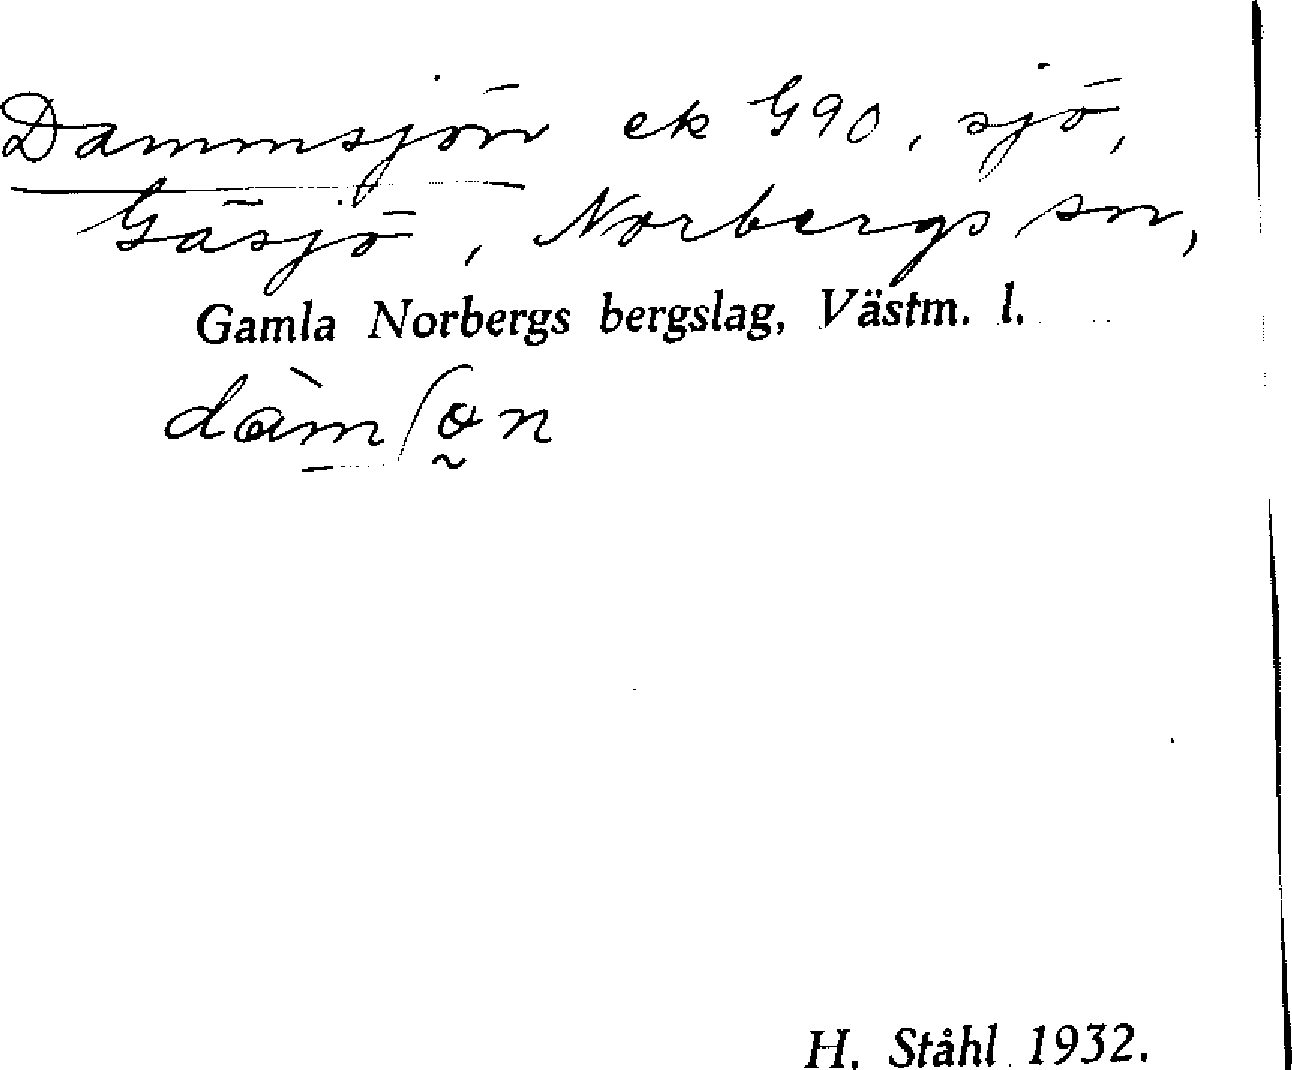 Dammsjön ek G90, sjö,
Gäsjö, Norbergs sn,
Gamla Norbergs bergslag, Västm. l.
H. Ståhl 1932.